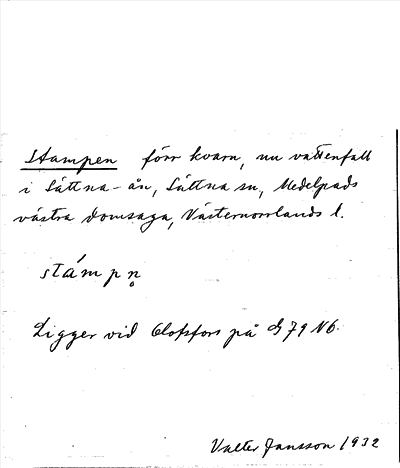 Stampen förr kvarn, nu vattenfall
i Sättna-ån, Sättna sn, Medelpads
västra domsaga, Västernorrlands l.
stámpn̥
Ligger vid Olofsfors på G 79 N6.
Valter Jansson 1932